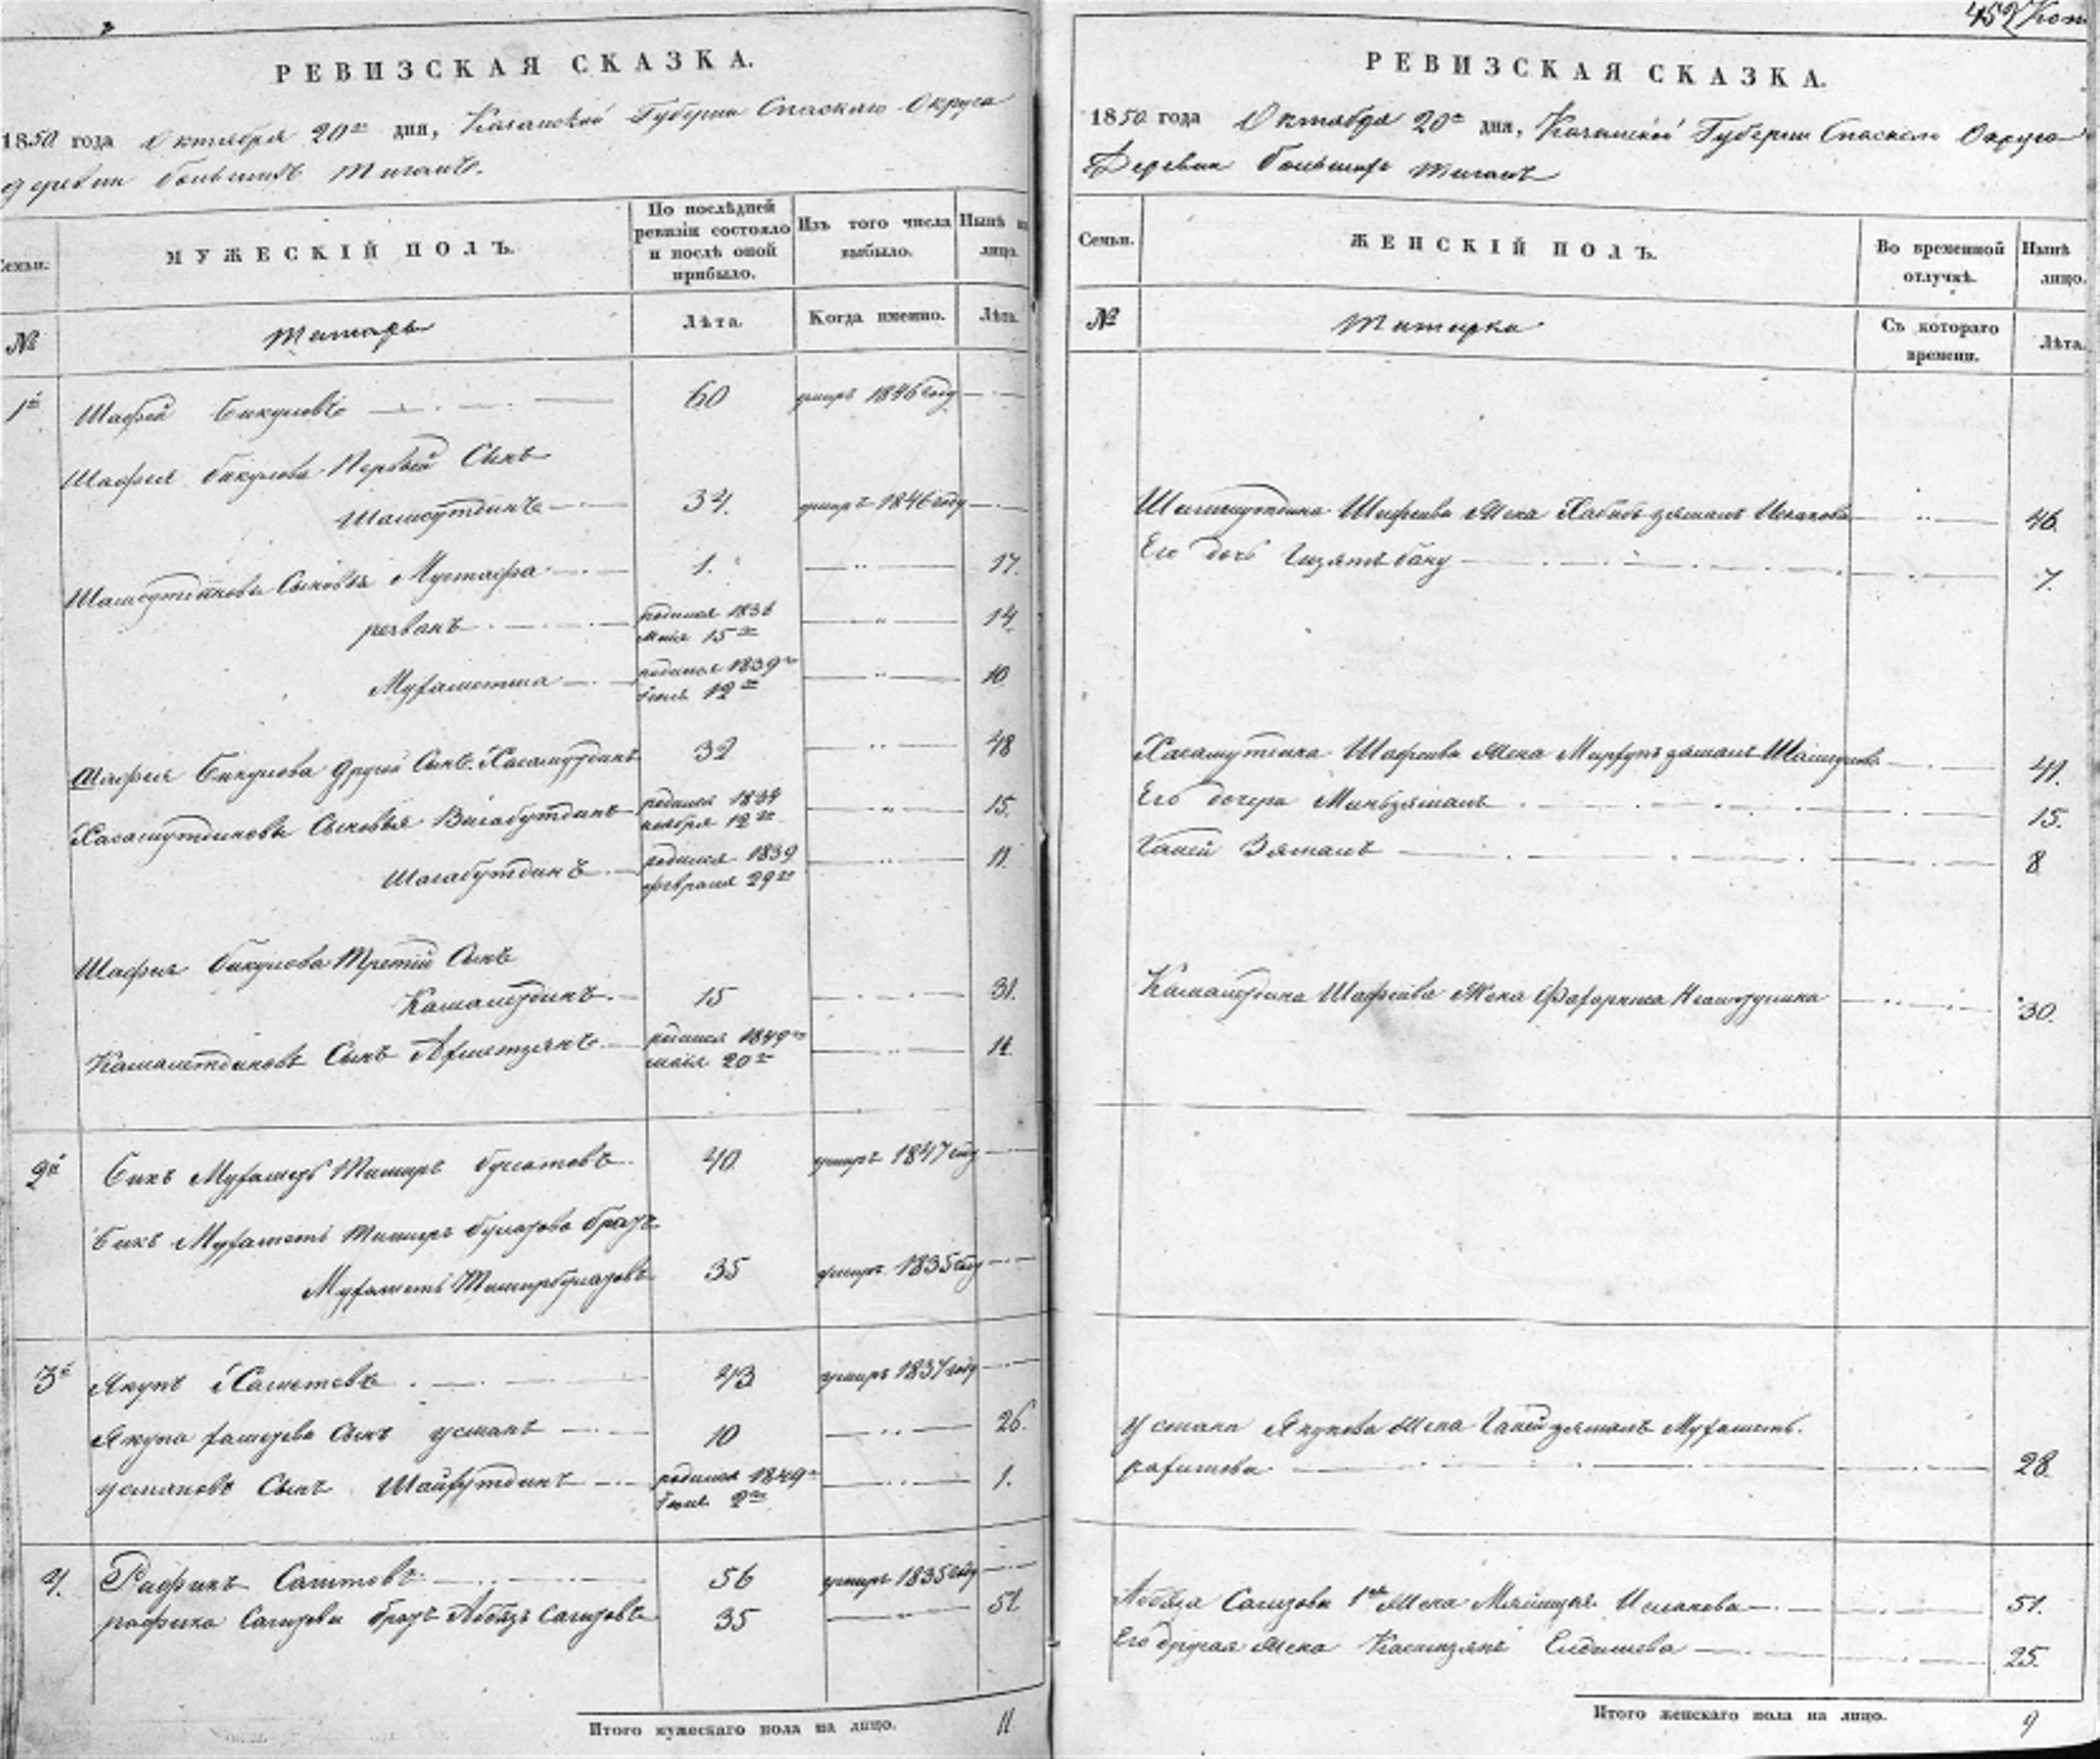 РЕВИЗСКАЯ СКАЗКА.
1850 года Октября 20го дня, Казанской Губернии Спаскаго Округа
деревни большихъ Тиганъ.
Семьи.
МУЖЕСКІЙ ПОЛЪ.
По послѣдней
ревизіи состояло
и послѣ оной
прибыло.
Изъ того числа
выбыло.
Нынѣ на
лицо.
№
Татары
Лѣта.
Когда именно.
Лѣта.
1й Шафей Бикуловъ 60 умеръ 1846 году
Шафея бикулова Первый Сынъ
Шамсутдинъ 34. умеръ 1846 году
Шамсутдиновы Сыновья Мустафа 1. 17.
резванъ родился 1836 14
Мая 15го
Мухаметша родился 1839го 10
Іюня 12го
Шафея Бикулова другой Сынъ Хасамутдинъ 32 48
Хасамутдиновы Сыновья Вагабутдинъ родился 1834 15.
ноября 12го
Шагабутдинъ родился 1839 11.
февраля 29го
Шафея бикулова Третій Сынъ
Камалетдинъ 15 31.
Камалетдиновъ Сынъ Ахметзянъ родился 1849го 1 1/2
маія 20го
2й Бикъ Мухаметь Тимиръ булатовъ 40 умеръ 1847 году
Бикъ Мухаметь Тимиръ булатова братъ
Мухаметь Тимирбулатовъ 35 умеръ 1835 году
3й Якупъ Хаметевъ 43 умеръ 1837 году
Якупа хаметева Сынъ усманъ 10 26.
усмановъ Сынъ Шайхутдинъ родился 1849го 1.
Іюня 2го
4. Рафикъ Сагитовъ 56 умеръ 1835 году
рафика Сагитова братъ Аббязъ Сагитовъ 35 51
Итого мужескаго пола на лицо. 11
452
РЕВИЗСКАЯ СКАЗКА.
1850 года Октября 20го дня, Казанской Губерніи Спаскаго Округа
Деревни большихъ Тиганъ
Семьи.
ЖЕНСКІЙ ПОЛЪ.
Во временной
отлучкѣ.
Нынѣ
лицо.
№
Татарки
Съ котораго
времени.
Лѣта.
Шамсутдина Шафеева Жена Хабибъ зямалъ Исхакова 46.
Его дочь Гизятъ бану 7.
Хасамутдина Шафеева Жена 41.
Его дочери Миньзямалъ 15.
Ганей Зямалъ 8
Камалетдина Шафеева Жена 30.
усмана Якупова Жена Ганей зямалъ Мухаметь.
рахимова 28.
Аббяза Сагитова 1ая Жена Исхакова 51.
Его другая Жена 25.
Итого женскаго пола на лицо. 9